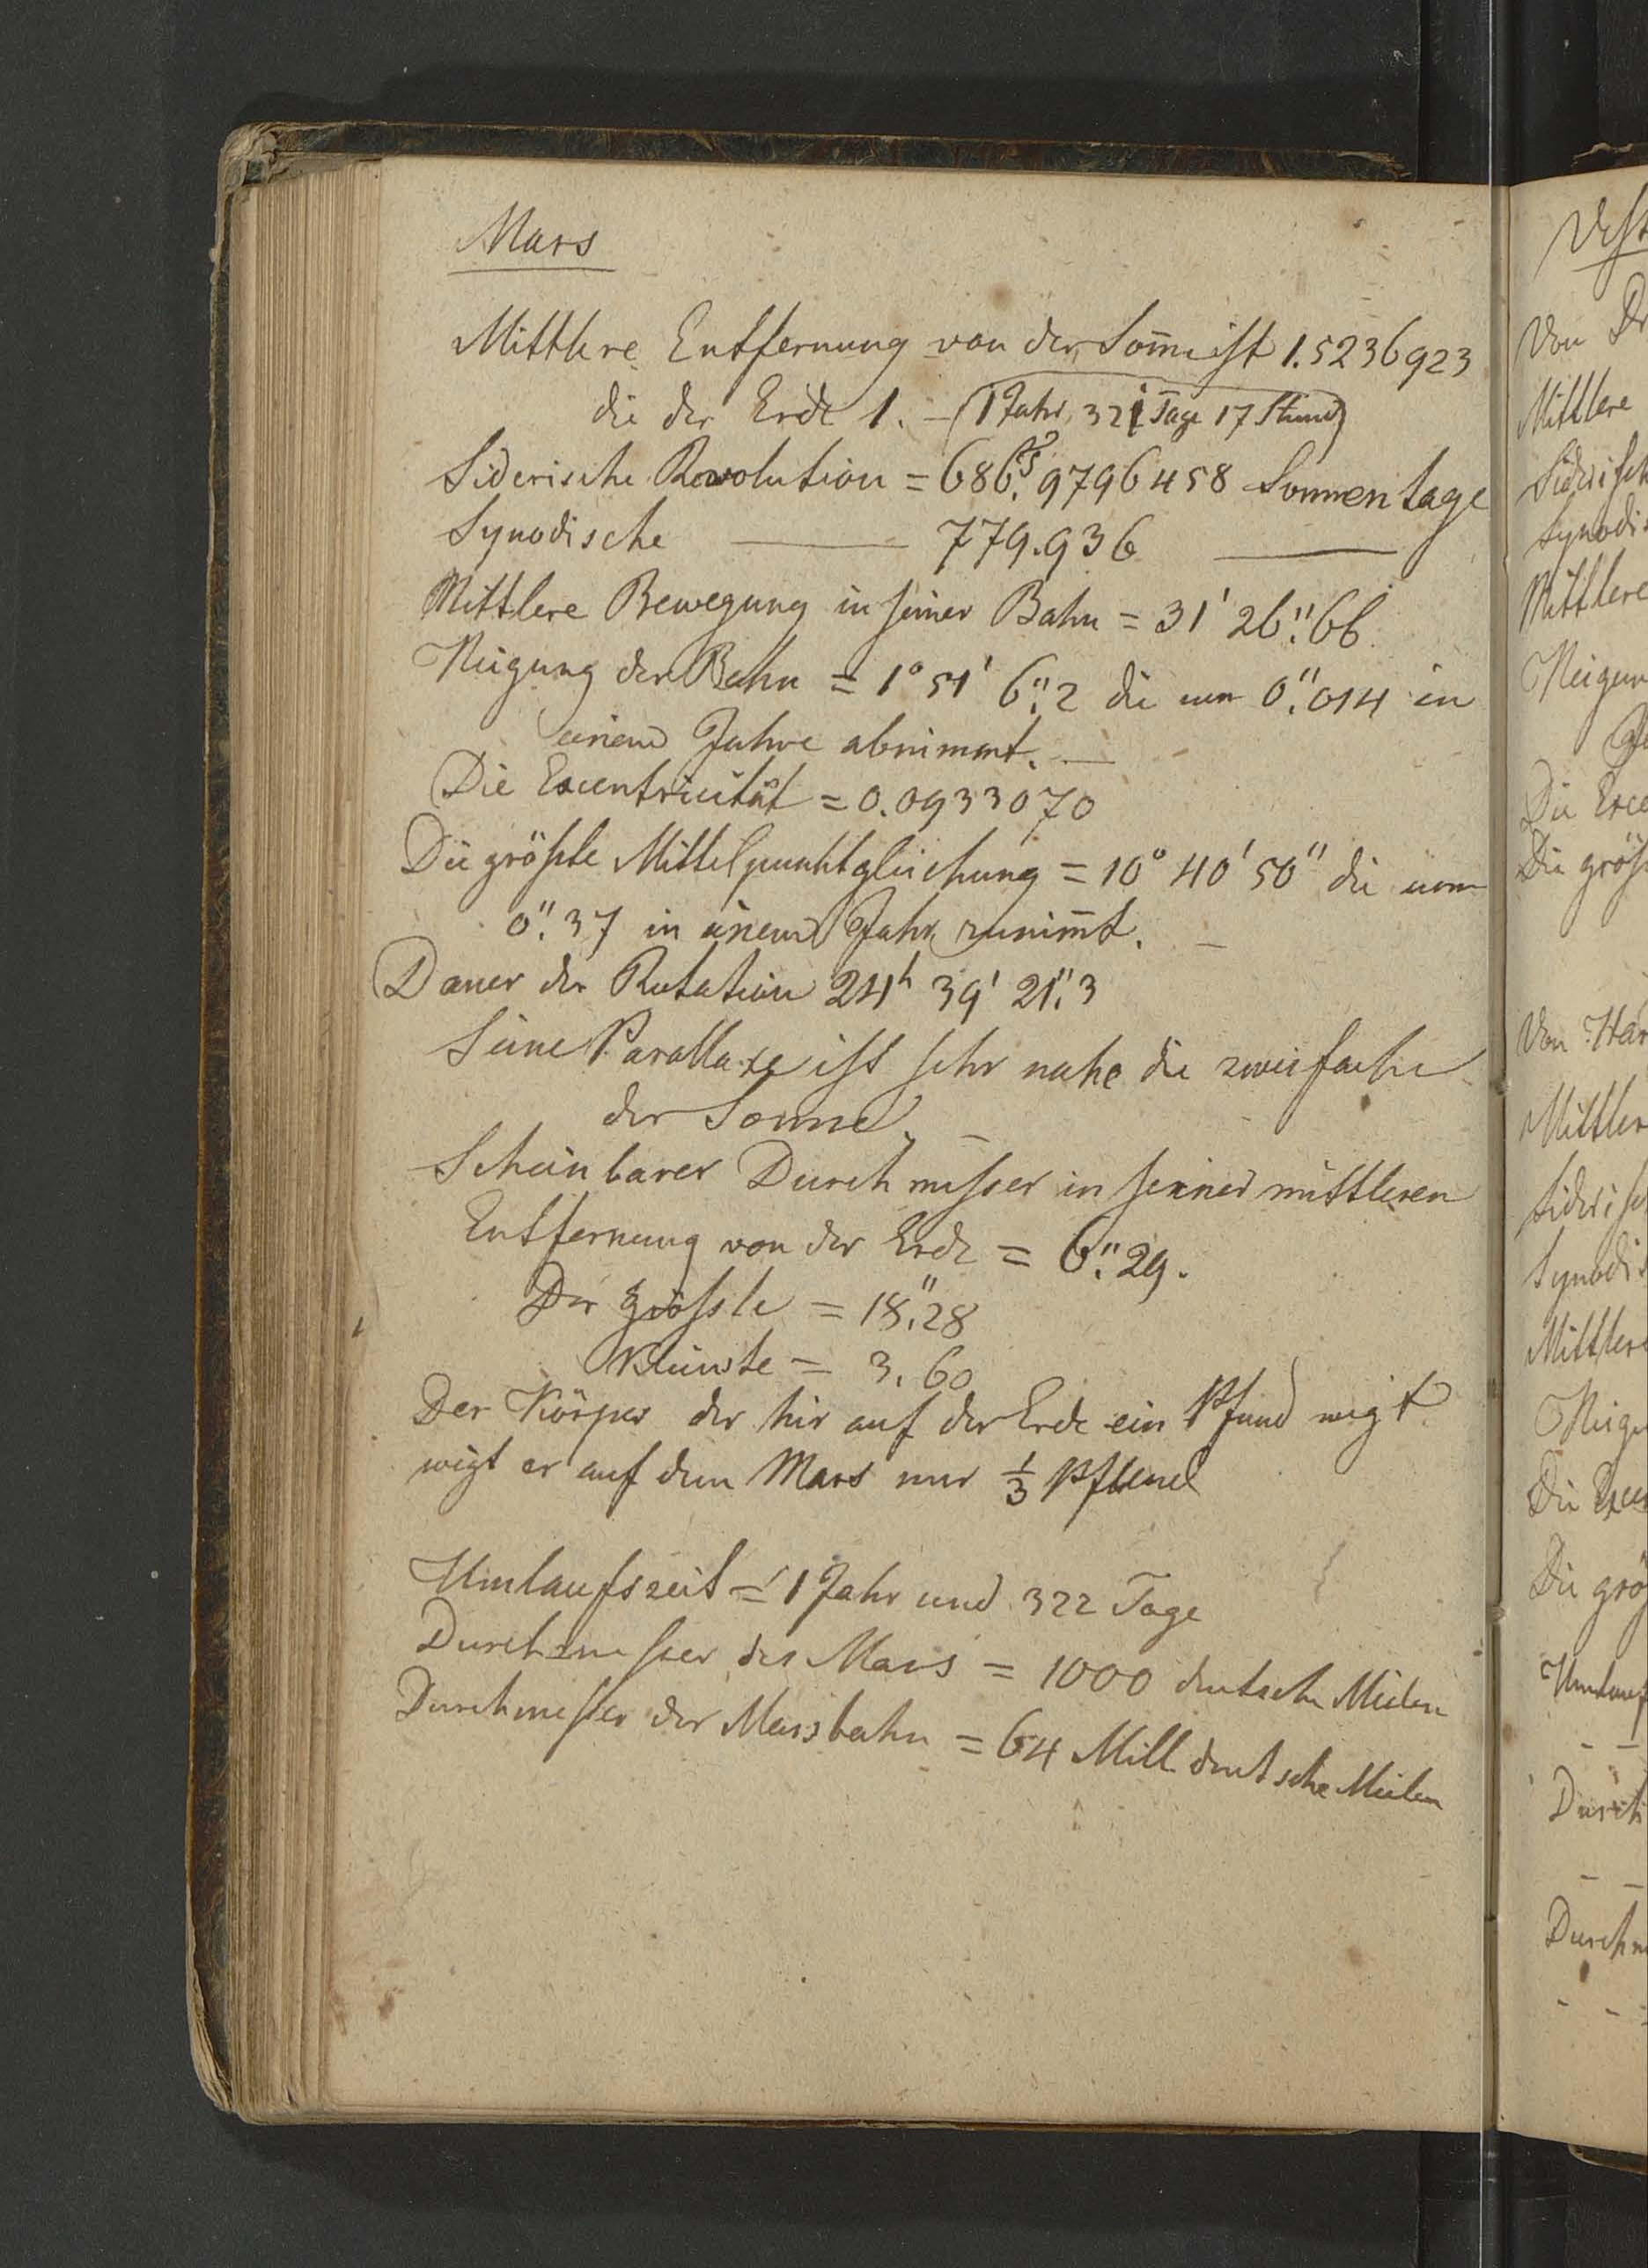 Mars
Mittlere Entfernung von der Som̅e ist 1.5236923
die der Erde 1. – (1 Jahr, 321 Tage 17 Stund)
Siderische Revolution = 686.9796458 Sonnentage
Synodische — 779.936 —
Mittlere Bewegung in seiner Bahn = 31' 26."66
Neigung der Bahn = 1° 51' 6."2 die um 0."014 in
einem Jahre abnimmt. —
Die Excentricität = 0.0933070
Die größte Mittelpunktgleichung = 10° 40' 50" die um
0."37 in einem Jahr zunim̅t. –
Dauer der Rotation 24h 39' 21."3
Seine Parallaxe ist sehr nahe die zweifache
der Sonne. –
Scheinbarer Durchmesser in seiner mittleren
Entfernung von der Erde = 6."29.
Der größte = 18."28
Kleinste = 3.60
Der Körper der hir auf der Erde ein Pfund wigt
wigt er auf dem Mars nur 1/3 Pfund
Umlaufszeit = 1 Jahr und 322 Tage
Durchmesser des Mars = 1000 deutsche Meilen
Durchmesser der Marsbahn = 64 Mill deutsche Meilen
Von
Mittlere
Mittlere
Die größ
Von Har
Mittler
Synodis
Mittlere
Die
Durch
Durchm